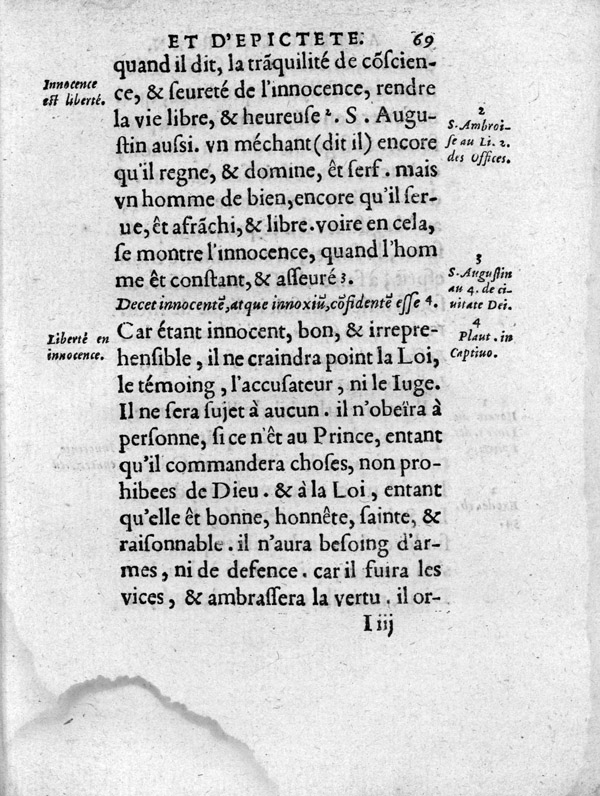 ET D'EPICTETE. 69
quand il dit, la trãquilité de cõſcien-
ce, & ſeureté de l'innocence, rendre
la vie libre, & heureuſe 2. S. Augu-
ſtin auſſi. vn méchant (dit il) encore
qu'il regne, & domine, êt ſerf. mais
vn homme de bien, encore qu'il ſer-
ue, êt afrãchi, & libre. voire en cela,
ſe montre l'innocence, quand l'hom
me êt conſtant, & aſſeuré 3.
Decet innocentẽ, atque innoxiũ, cõfidentẽ eſſe 4.
Car étant innocent, bon, & irrepre-
henſible, il ne craindra point la Loi,
le témoing, l'accuſateur, ni le Iuge.
Il ne ſera ſujet à aucun. il n'obeïra à
perſonne, ſi ce n'êt au Prince, entant
qu'il commandera choſes, non pro-
hibees de Dieu. & à la Loi, entant
qu'elle êt bonne, honnête, ſainte, &
raiſonnable. il n'aura beſoing d'ar-
mes, ni de defence. car il fuira les
vices, & ambraſſera la vertu. il or-
I iij
Innocence
eſt liberté.
Liberté en
innocence.
2
S. Ambroi-
ſe au Li. 2.
des Offices.
3
S. Auguſtin
au 4. de ci-
uitate Dei.
4
Plaut. in
Captiuo.